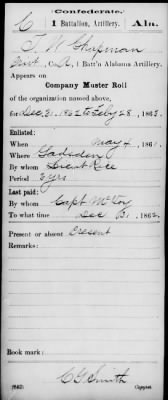 Confederate.
C 1 Battalion, Artillery. Ala.
T. W. Chapman
Co. A, 1 Batt'n Alabama Artillery.
Appears on
Company Muster Roll
of the organization named above,
for Dec 31, 1862 to Feby 28, 1863.
Enlisted:
When May 4, 1861.
Where Gadsden
By whom Lieut Rice
Period 3 yrs
Last paid:
By whom Capt McVoy
To what time Dec 31, 1862.
Present or absent Present
Remarks:
Book mark:
C G Smith
(642) Copyist.